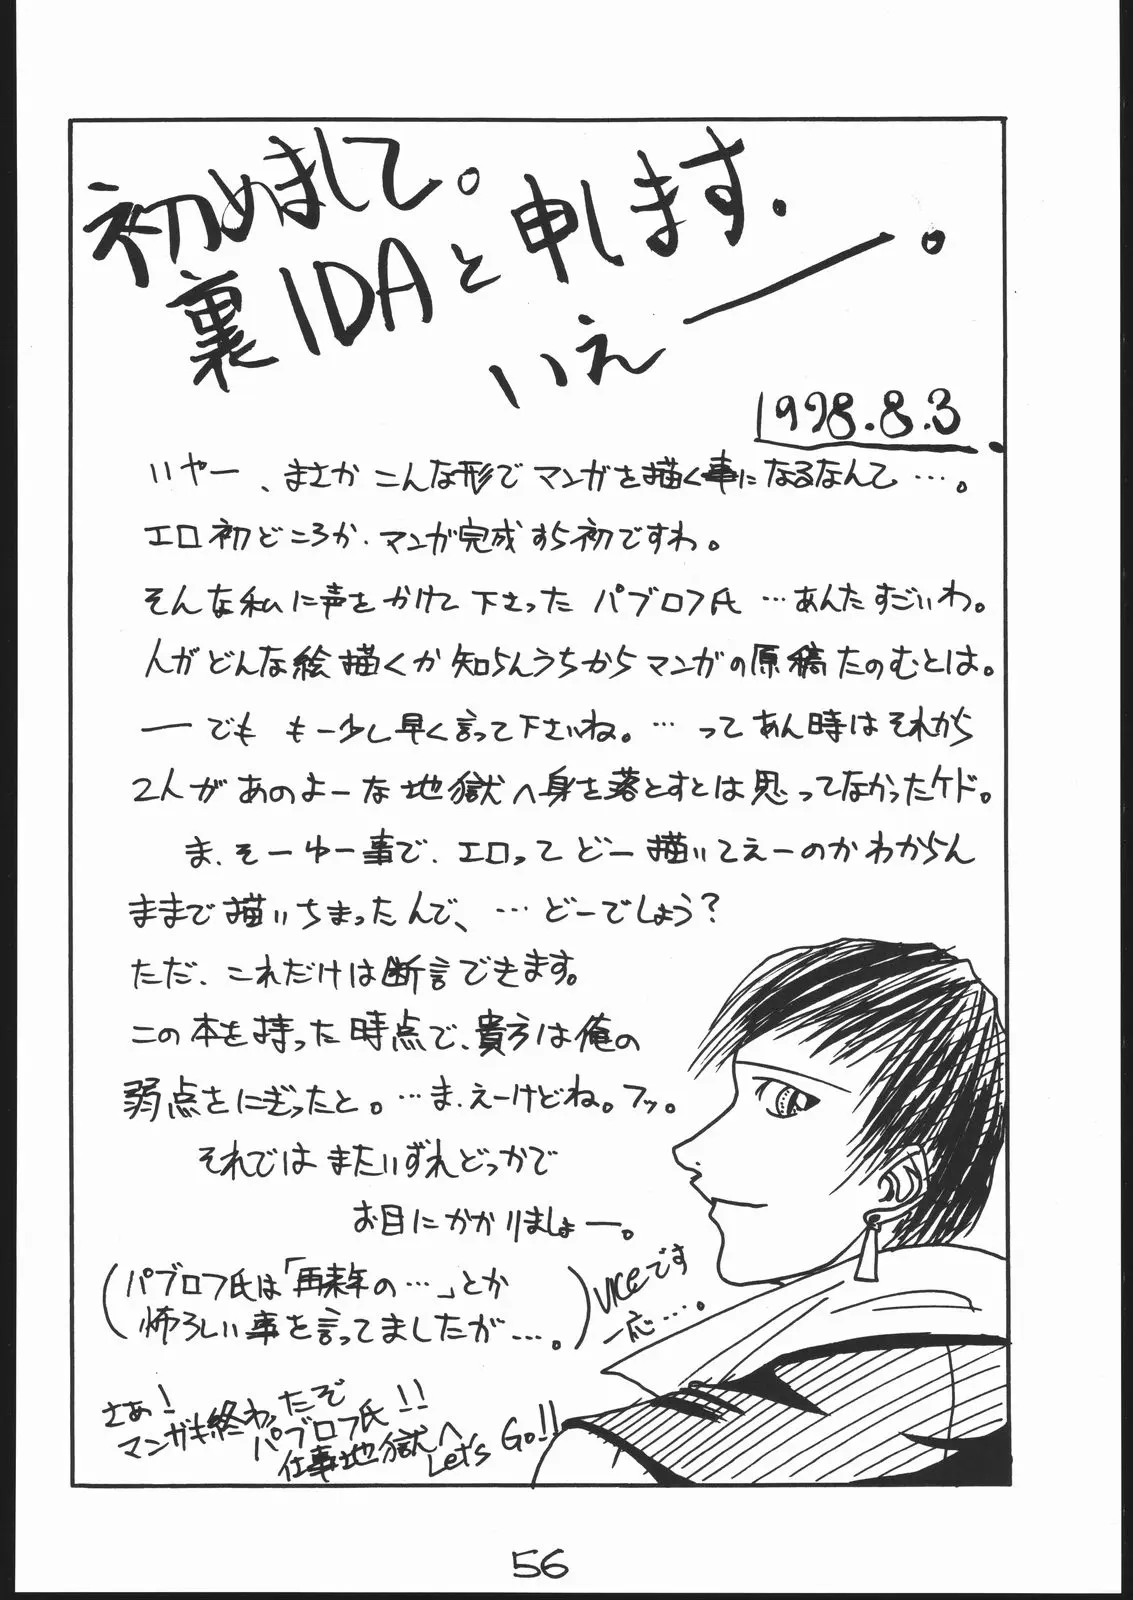 初めまして。
裏IDAと申します.
いえー。
1998.8.3.
いやー、まさかこんな形でマンガを描く事になるなんて…。
エロ初どころか、マンガ完成すら初ですわ。
そんな私に声をかけて下さったパブロフ氏…あんたすごいわ。
人がどんな絵描くか知らんうちからマンガの原稿たのむとは。
ーでも もー少し早く言って下さいね。…ってあん時はそれから
2人があのよーな地獄へ身を落とすとは思ってなかったケド。
ま、そーゆー事で、エロってどー描いてえーのかわからん
ままで描いちまったんで、…どーでしょう?
ただ、これだけは断言できます。
この本を持った時点で、貴方は俺の
弱点をにぎったと。…ま、えーけどね。フッ。
それではまたいずれどっかで
お目にかかりましょー。
(パブロフ氏は「再来年の…」とか
怖ろしい事を言ってましたが…。)
VICEです
一応…。
さぁ!
マンガも終わったぞ
パブロフ氏!!
仕事地獄へ
Let's Go!!
56